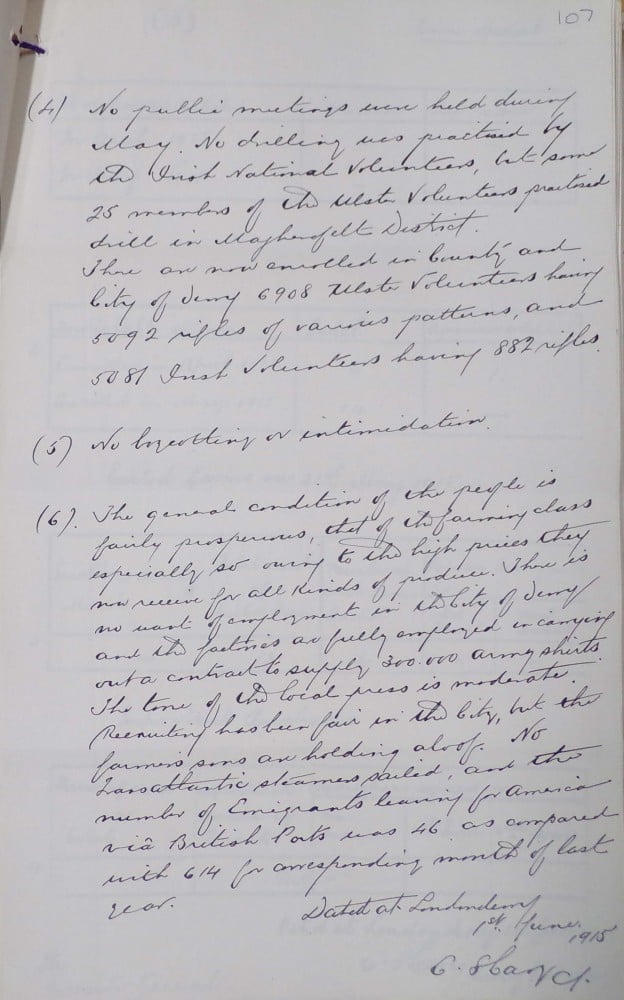 107
(4) No public meetings were held during
May. No drilling was practised by
the Irish National Volunteers, but some
25 members of the Ulster Volunteers practised
drill in Magherafelt District.
There are now enrolled in County and
City of Derry 6908 Ulster Volunteers having
5092 rifles of various patterns, and
5081 Irish Volunteers having 882 rifles.
(5) No boycotting or intimidation.
(6). The general condition of the people is
fairly prosperous, that of the farming class
especially so owing to the high prices they
now receive for all kinds of produce. There is
no want of employment in the City of Derry
and the factories are fully employed in carrying
out a contract to supply 300.000 army shirts
The tone of the local press is moderate.
Recruiting has been fair in the City, but the
farmers sons are holding aloof. No
Transatlantic steamers sailed, and the
number of Emigrants leaving for America
viâ British Ports was 46 as compared
with 614 for corresponding month of last
year.
Dated at Londonderry
1st. June. 1915
C.